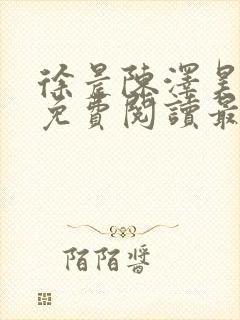 徐景陳澤昊
免費閱讀最
陌陌醬